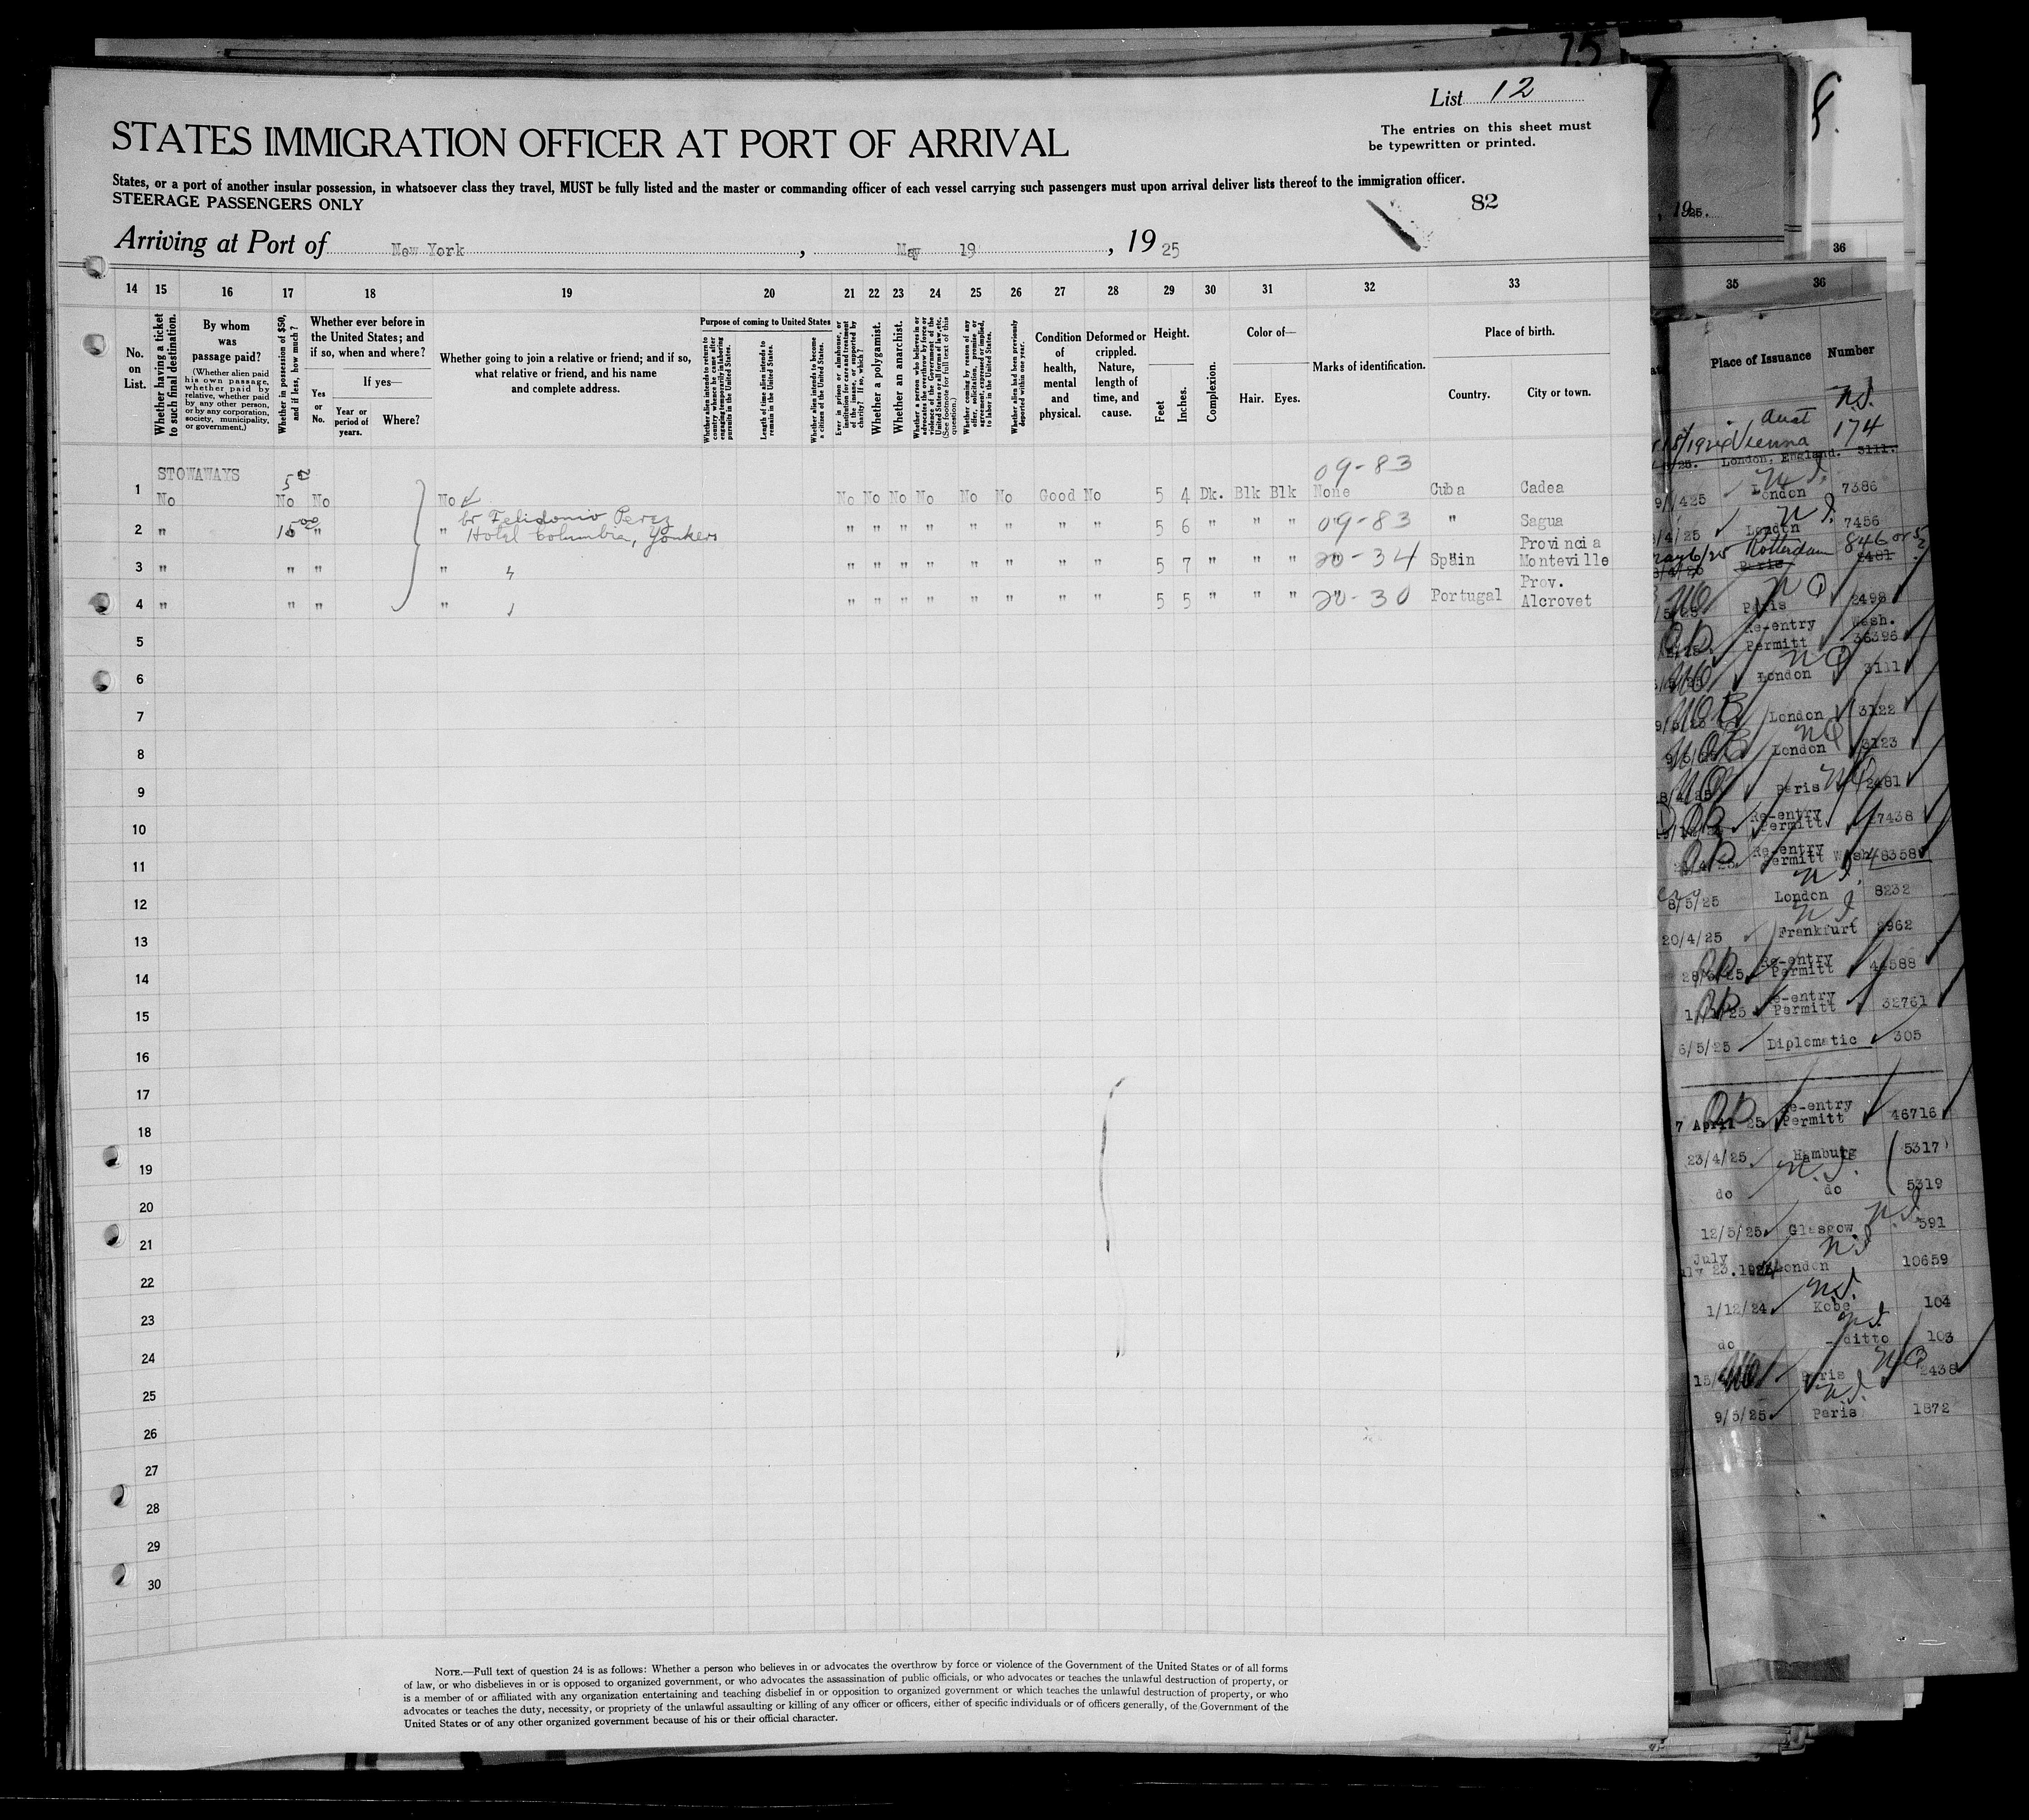 15
List 12
STATES IMMIGRATION OFFICER AT PORT OF ARRIVAL
The entries on this sheet must
be typewritten or printed.
States, or a port of another insular possession, in whatsoever class they travel, MUST be fully listed and the master or commanding officer of each vessel carrying such passengers must upon arrival deliver lists thereof to the immigration officer.
STEERAGE PASSENGERS ONLY
82
Arriving at Port of New York, May 19, 1925
14 15 16 17 18 19 20 21 22 23 24 25 26 27 28 29 30 31 32 33
No. on List.
Whether having a ticket to such final destination.
By whom was passage paid?
(Whether alien paid his own passage, whether paid by relative, whether paid by any other person, or by any corporation, society, municipality, or government.)
Whether in possession of $50, and if less, how much?
Whether ever before in the United States; and if so, when and where?
Yes or No.
If yes—
Year or period of years.
Where?
Whether going to join a relative or friend; and if so, what relative or friend, and his name and complete address.
Purpose of coming to United States
Whether alien intends to return to country whence he came after engaging temporarily in laboring pursuits in the United States.
Length of time alien intends to remain in the United States.
Whether alien intends to become a citizen of the United States.
Ever in prison or almshouse, or institution for care and treatment of the insane, or supported by charity? If so, which?
Whether a polygamist.
Whether an anarchist.
Whether a person who believes in or advocates the overthrow by force or violence of the Government of the United States or all forms of law, etc. (See footnote for full text of this question.)
Whether coming by reason of any offer, solicitation, promise or agreement, expressed or implied, to labor in the United States.
Whether alien had been previously deported within one year.
Condition of health, mental and physical.
Deformed or crippled. Nature, length of time, and cause.
Height.
Feet Inches
Complexion.
Color of—
Hair. Eyes.
Marks of identification.
Place of birth.
Country. City or town.
STOWAWAYS 5 09-83
1 No No No No No No No No No No Good No 5 4 Dk. Blk Blk None Cuba Cadea
br Felidonio Perez
2 " 15 00 " " Hotel Columbia, Yonkers " " " " " " " " 5 6 " " " 09-83 " Sagua
Provincia
3 " " " " " " " " " " " " 5 7 " " " 20-34 Spain Monteville
Prov.
4 " " " " " " " " " " " " 5 5 " " " 20-30 Portugal Alcrovet
5
6
7
8
9
10
11
12
13
14
15
16
17
18
19
20
21
22
23
24
25
26
27
28
29
30
NOTE.—Full text of question 24 is as follows: Whether a person who believes in or advocates the overthrow by force or violence of the Government of the United States or of all forms
of law, or who disbelieves in or is opposed to organized government, or who advocates the assassination of public officials, or who advocates or teaches the unlawful destruction of property, or
is a member of or affiliated with any organization entertaining and teaching disbelief in or opposition to organized government or which teaches the unlawful destruction of property, or who
advocates or teaches the duty, necessity, or propriety of the unlawful assaulting or killing of any officer or officers, either of specific individuals or of officers generally, of the Government of the
United States or of any other organized government because of his or their official character.
8.
, 1925.
36
35 36
Place of Issuance Number
Aust N.I.
Vienna 174
London, England. 3111.
London 7386
4/25 London 7456
May 6/25 Rotterdam 846
Paris 2481
Paris 2498
Re-entry Wash.
Permitt 36396
London 3111
London 3122
London 3123
Paris 2481
Re-entry
Permitt 17438
Re-entry
Permitt Wash 48358
8/5/25 London 8232
20/4/25 Frankfurt 2962
Re-entry
Permitt 44588
Re-entry
Permitt 32761
6/5/25 Diplomatic 305
Re-entry
7 April 25 Permitt 46716
23/4/25. Hamburg 5317
do do 5319
12/5/25 Glasgow 591
July
July 23.1924 London 10659
1/12/24 Kobe 104
do ditto 103
Paris 2438
9/5/25 Paris 1872